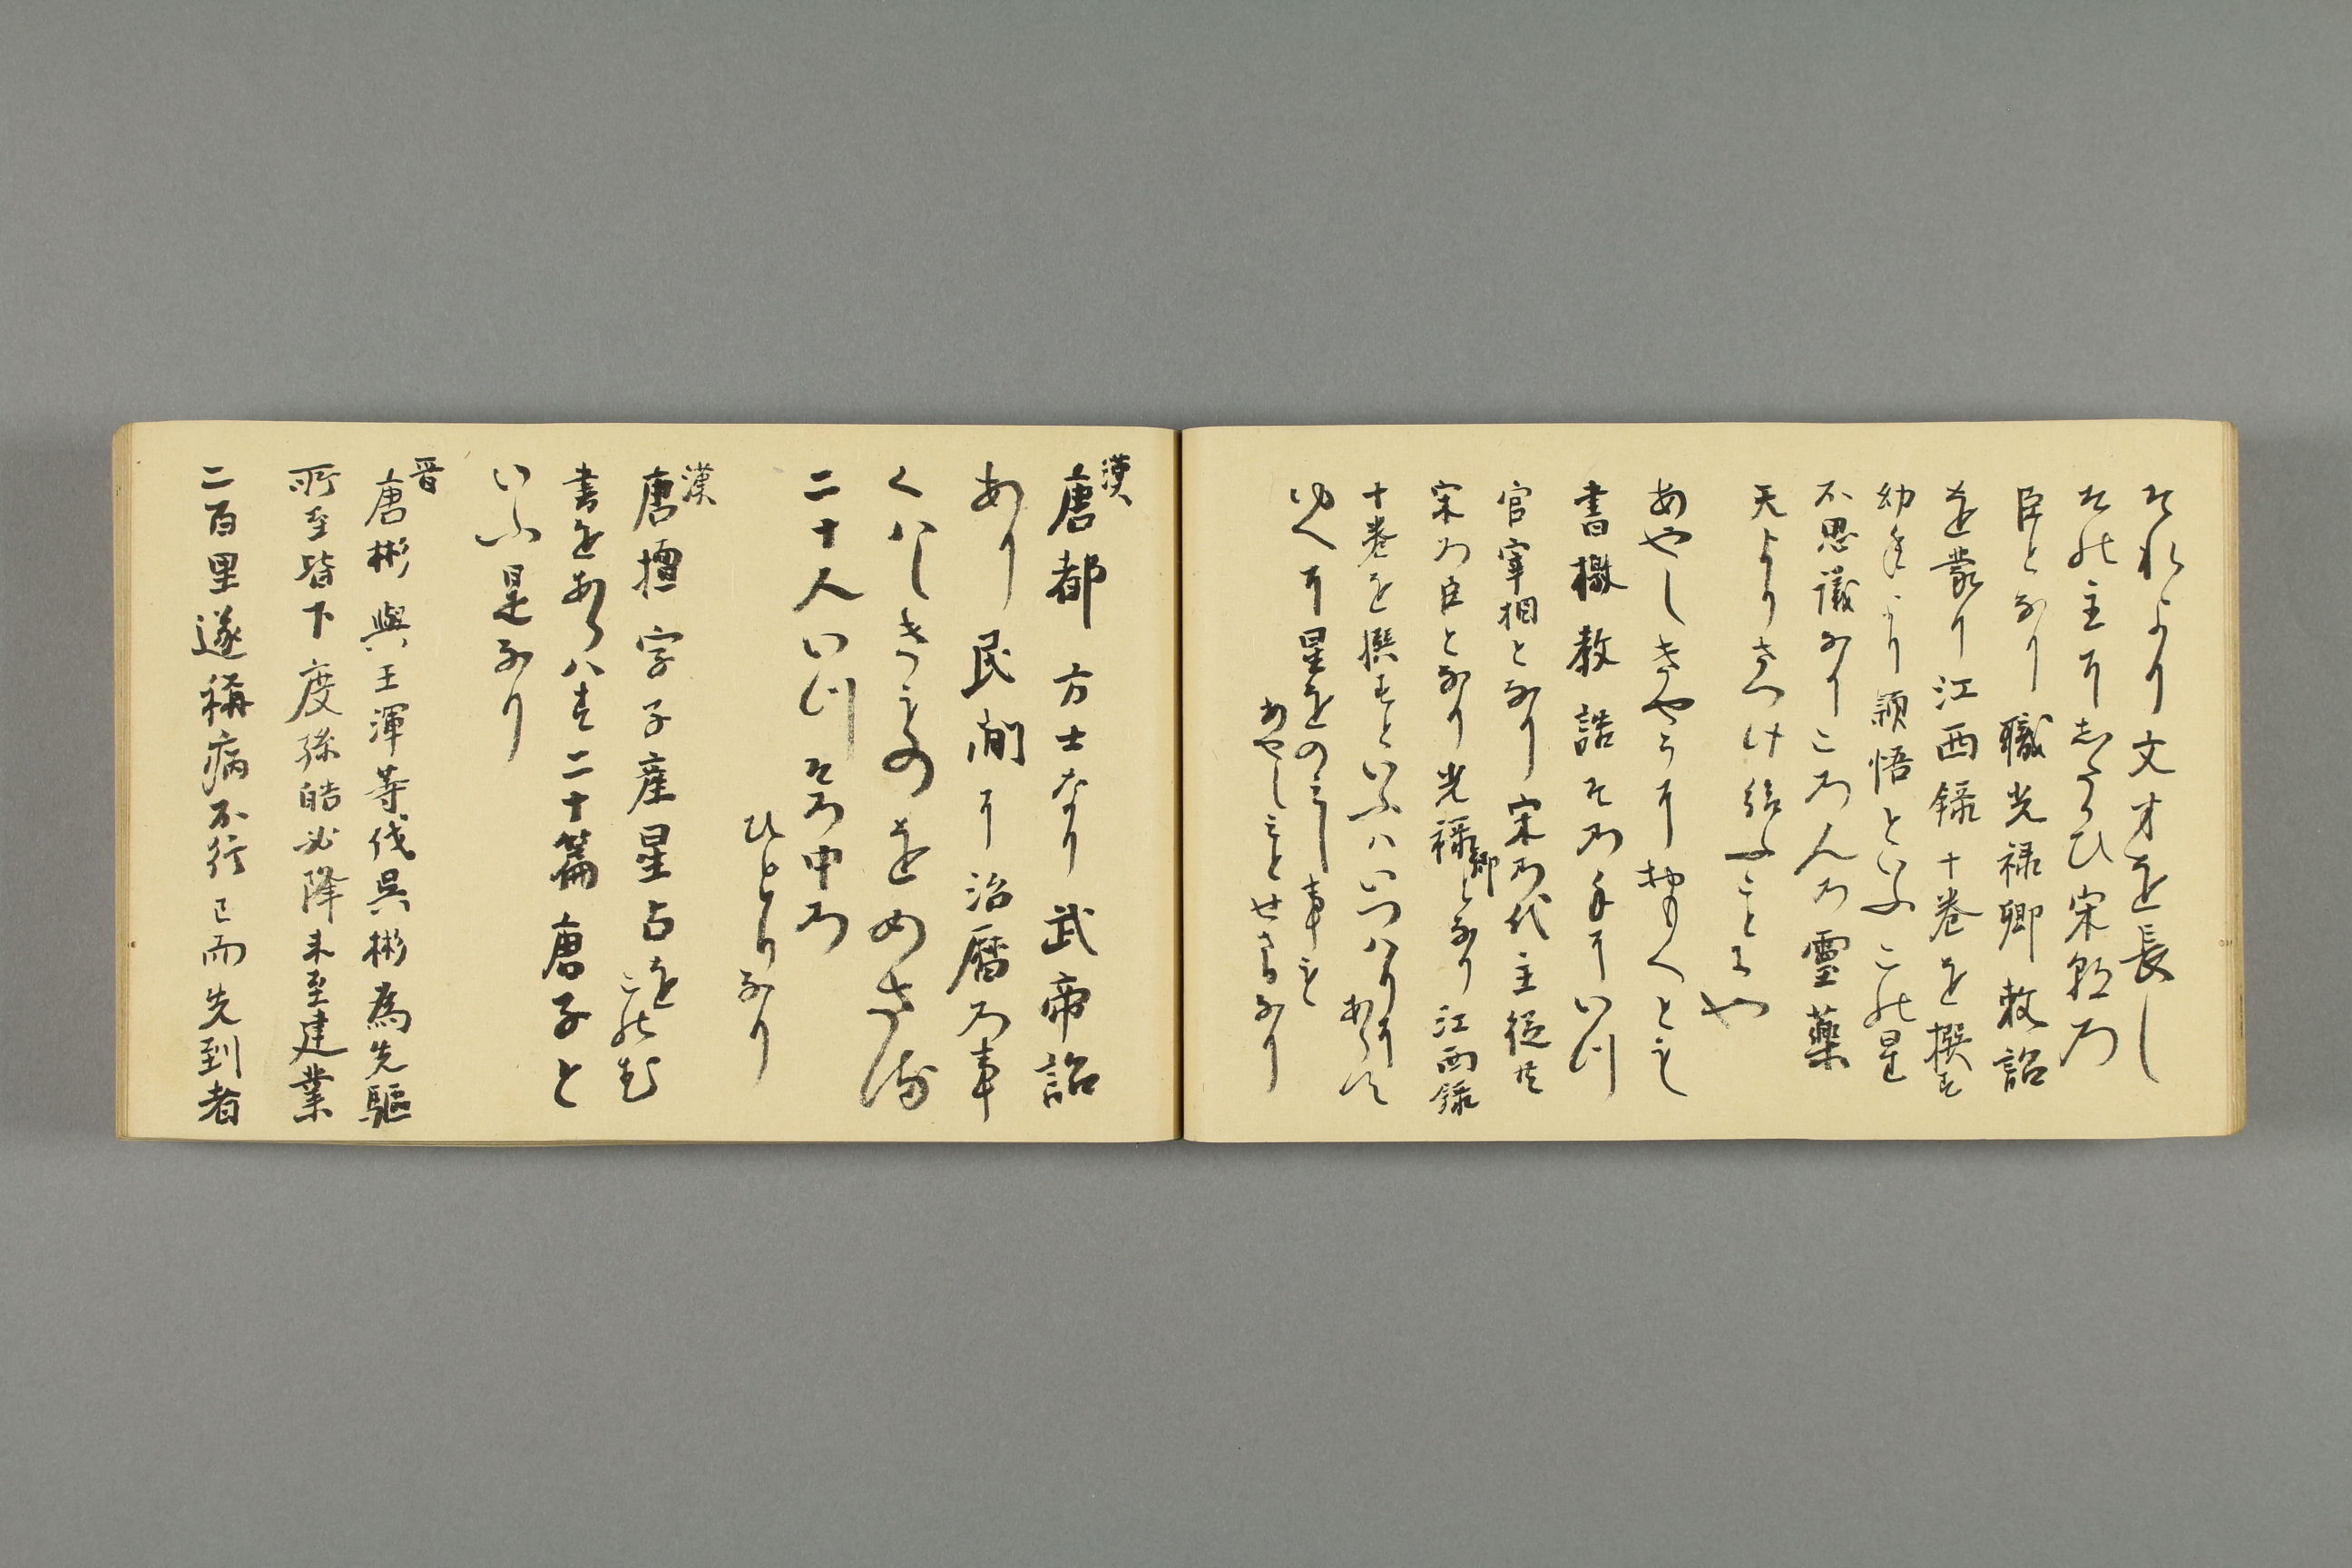 それより文才を長し
その主にしたかひ宋朝の
臣となり職光禄卿敕詔
を蒙り江西録十巻を撰す
幼年より頴悟といふこの星
不思議なりこの人の霊薬
天よりさつけ給ふことにや
あやしきやうにおもへとも
書檄教誥その手にいつ
官宰相となり宋の代主従共
宋の臣となり光禄卿となり江西録
十巻を撰すといふハいつハりにあらす
ゆへに星をのみし事も
あやしミとせさるなり
漢
唐都 方士なり武帝詔
あり民間に治暦の事
くハしきものをめさる
二十人いつその中の
ひとりなり
漢
唐檀字子産星占をこのむ
書をあらハす二十篇唐子と
いふ是なり
晋
唐彬與王渾等伐呉彬為先驅
所至皆下度孫皓必降未至建業
二百里遂稱病不行已而先到者